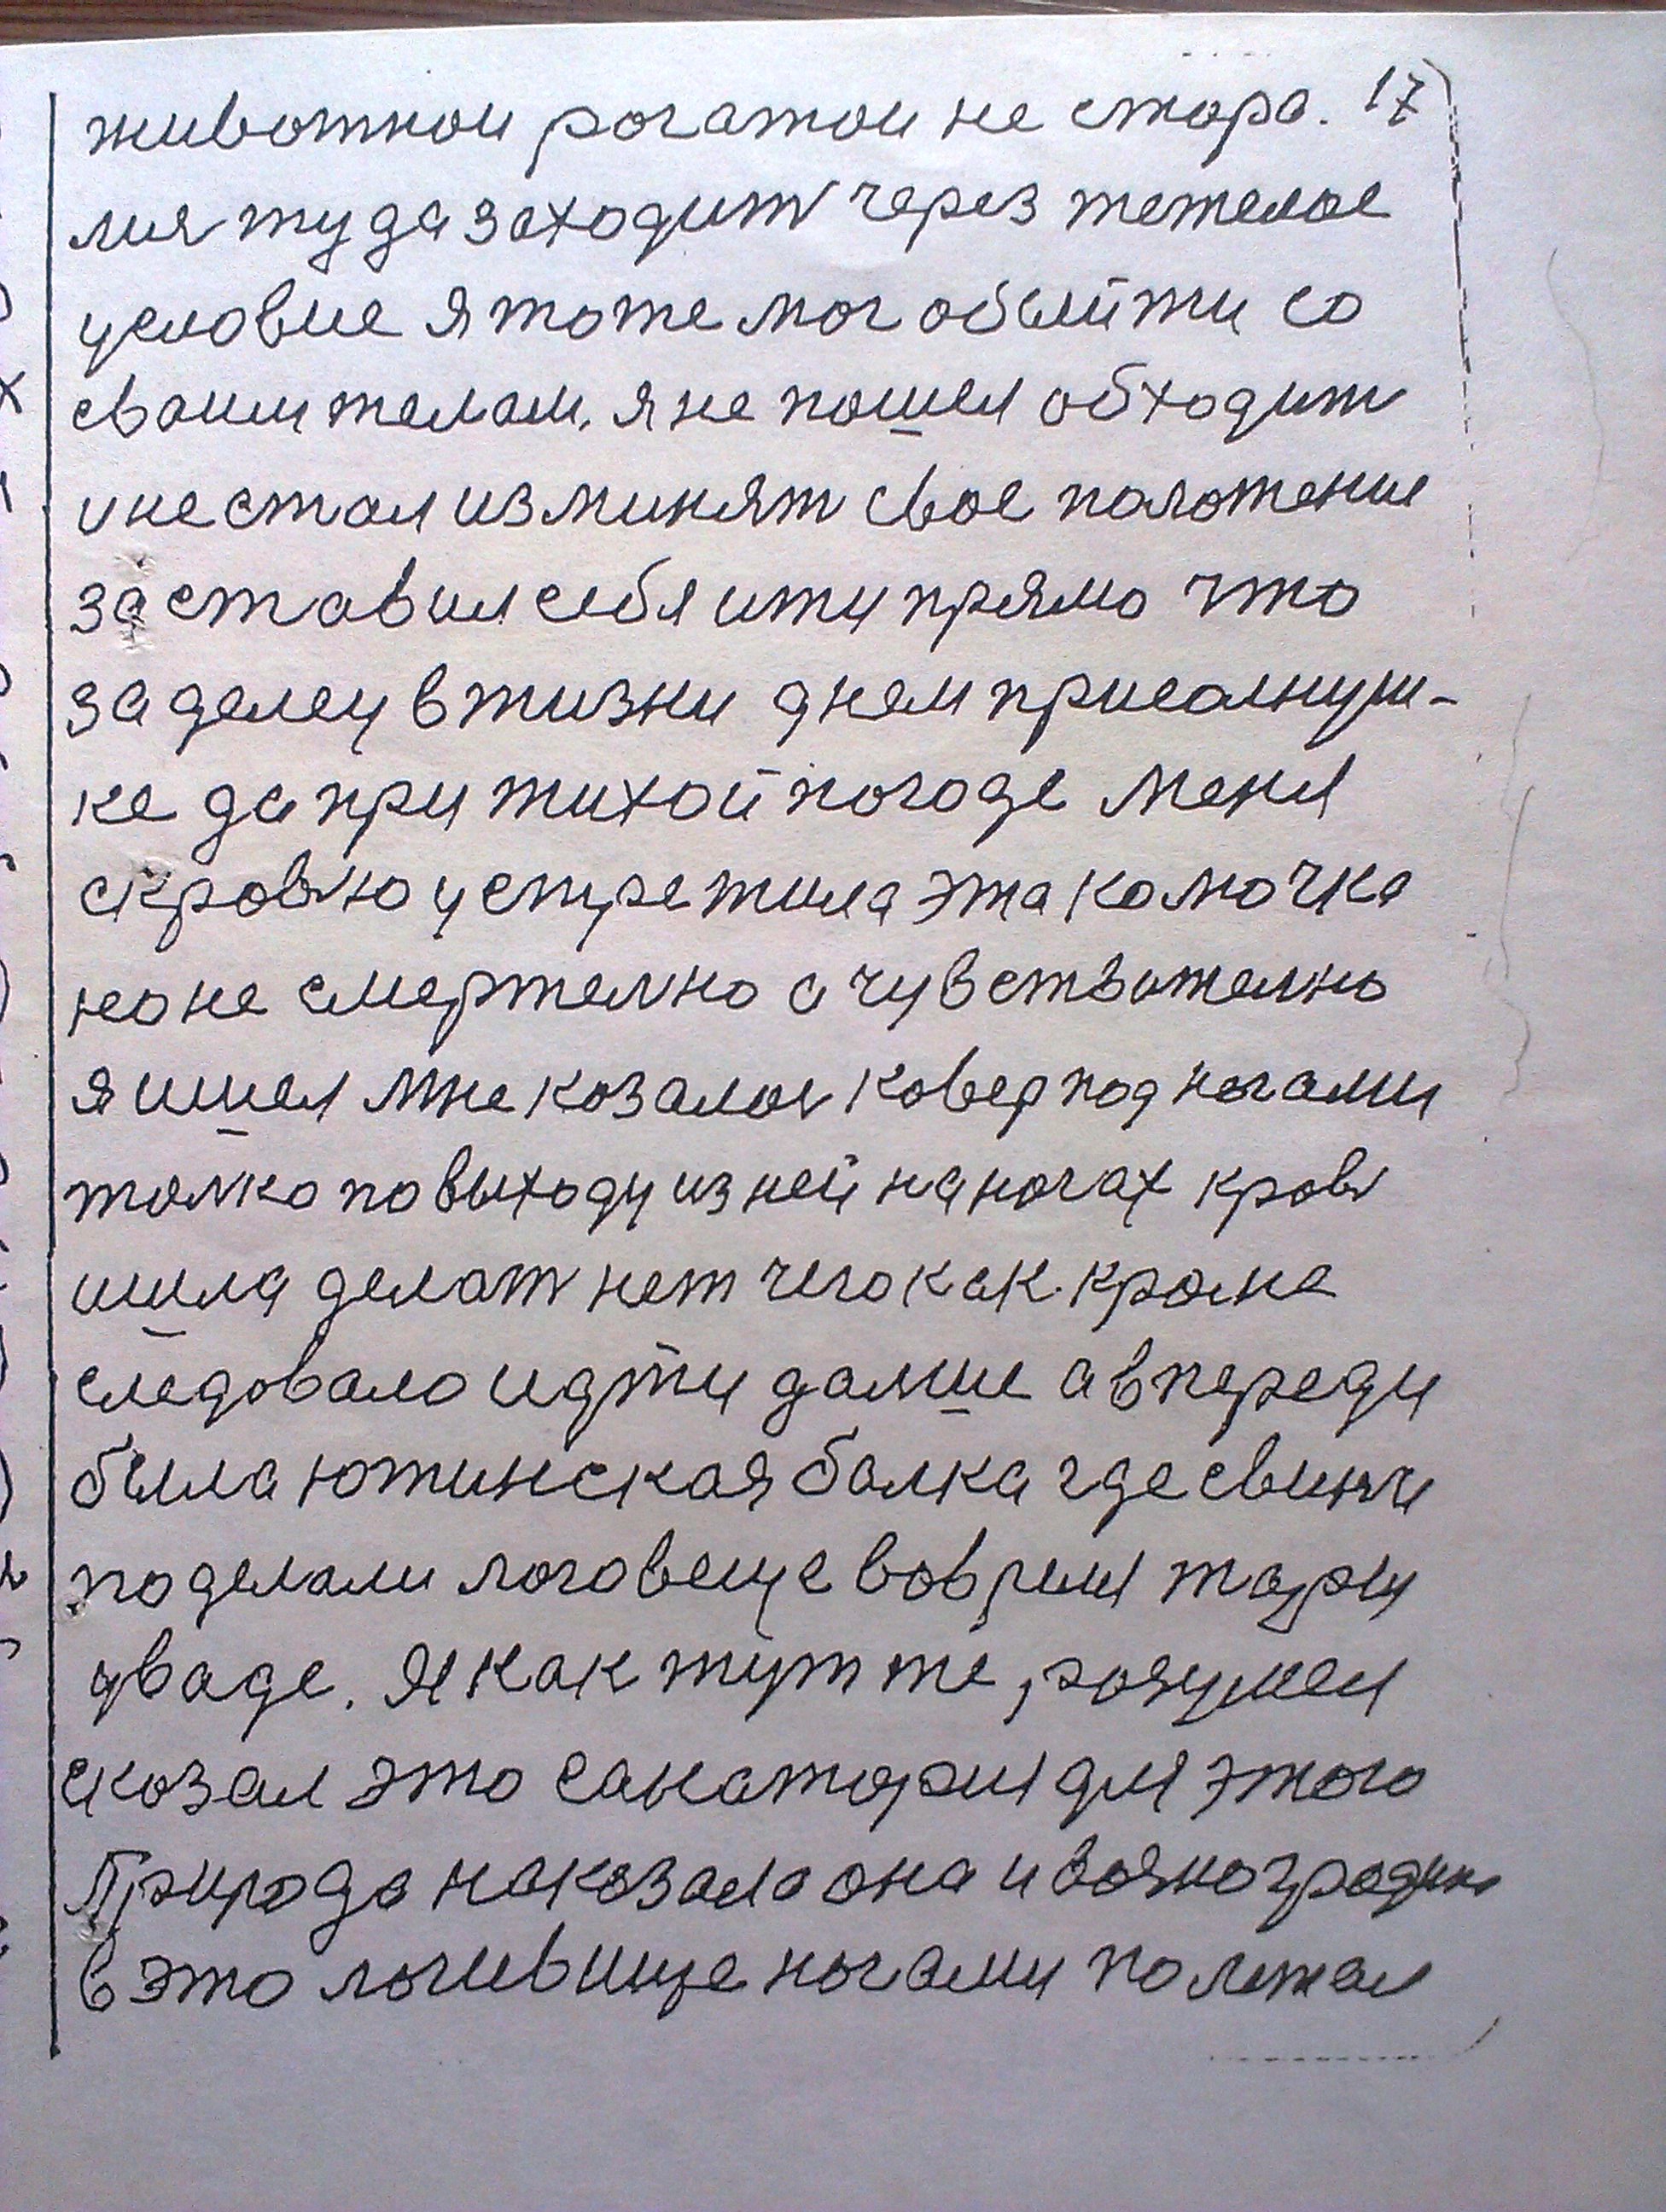 животнои рогатои не стора. 17
мия туда заходит через тежелое
условие я тоже мог обыйти со
сваим телам. я не пошел обходит
и не стал изминят свое положение
заставил себя ити прямо что
за делец в жизни днем при солнуш-
ке да при тихой погоде меня
с кровю устретила эта колючка
но не смертелно а чувствително
я шел мне козалос ковер под ногами
толко по выходу из ней на ногах кровь
шла делат нет чего как кроме
следовало идти далше а впереди
была южинская балка где свинни
поделали логовеще во время жары
у ваде. Я как тут же розумел
сказал это санатория для этого
Природа наказала она и
в это логивище ногами полежал